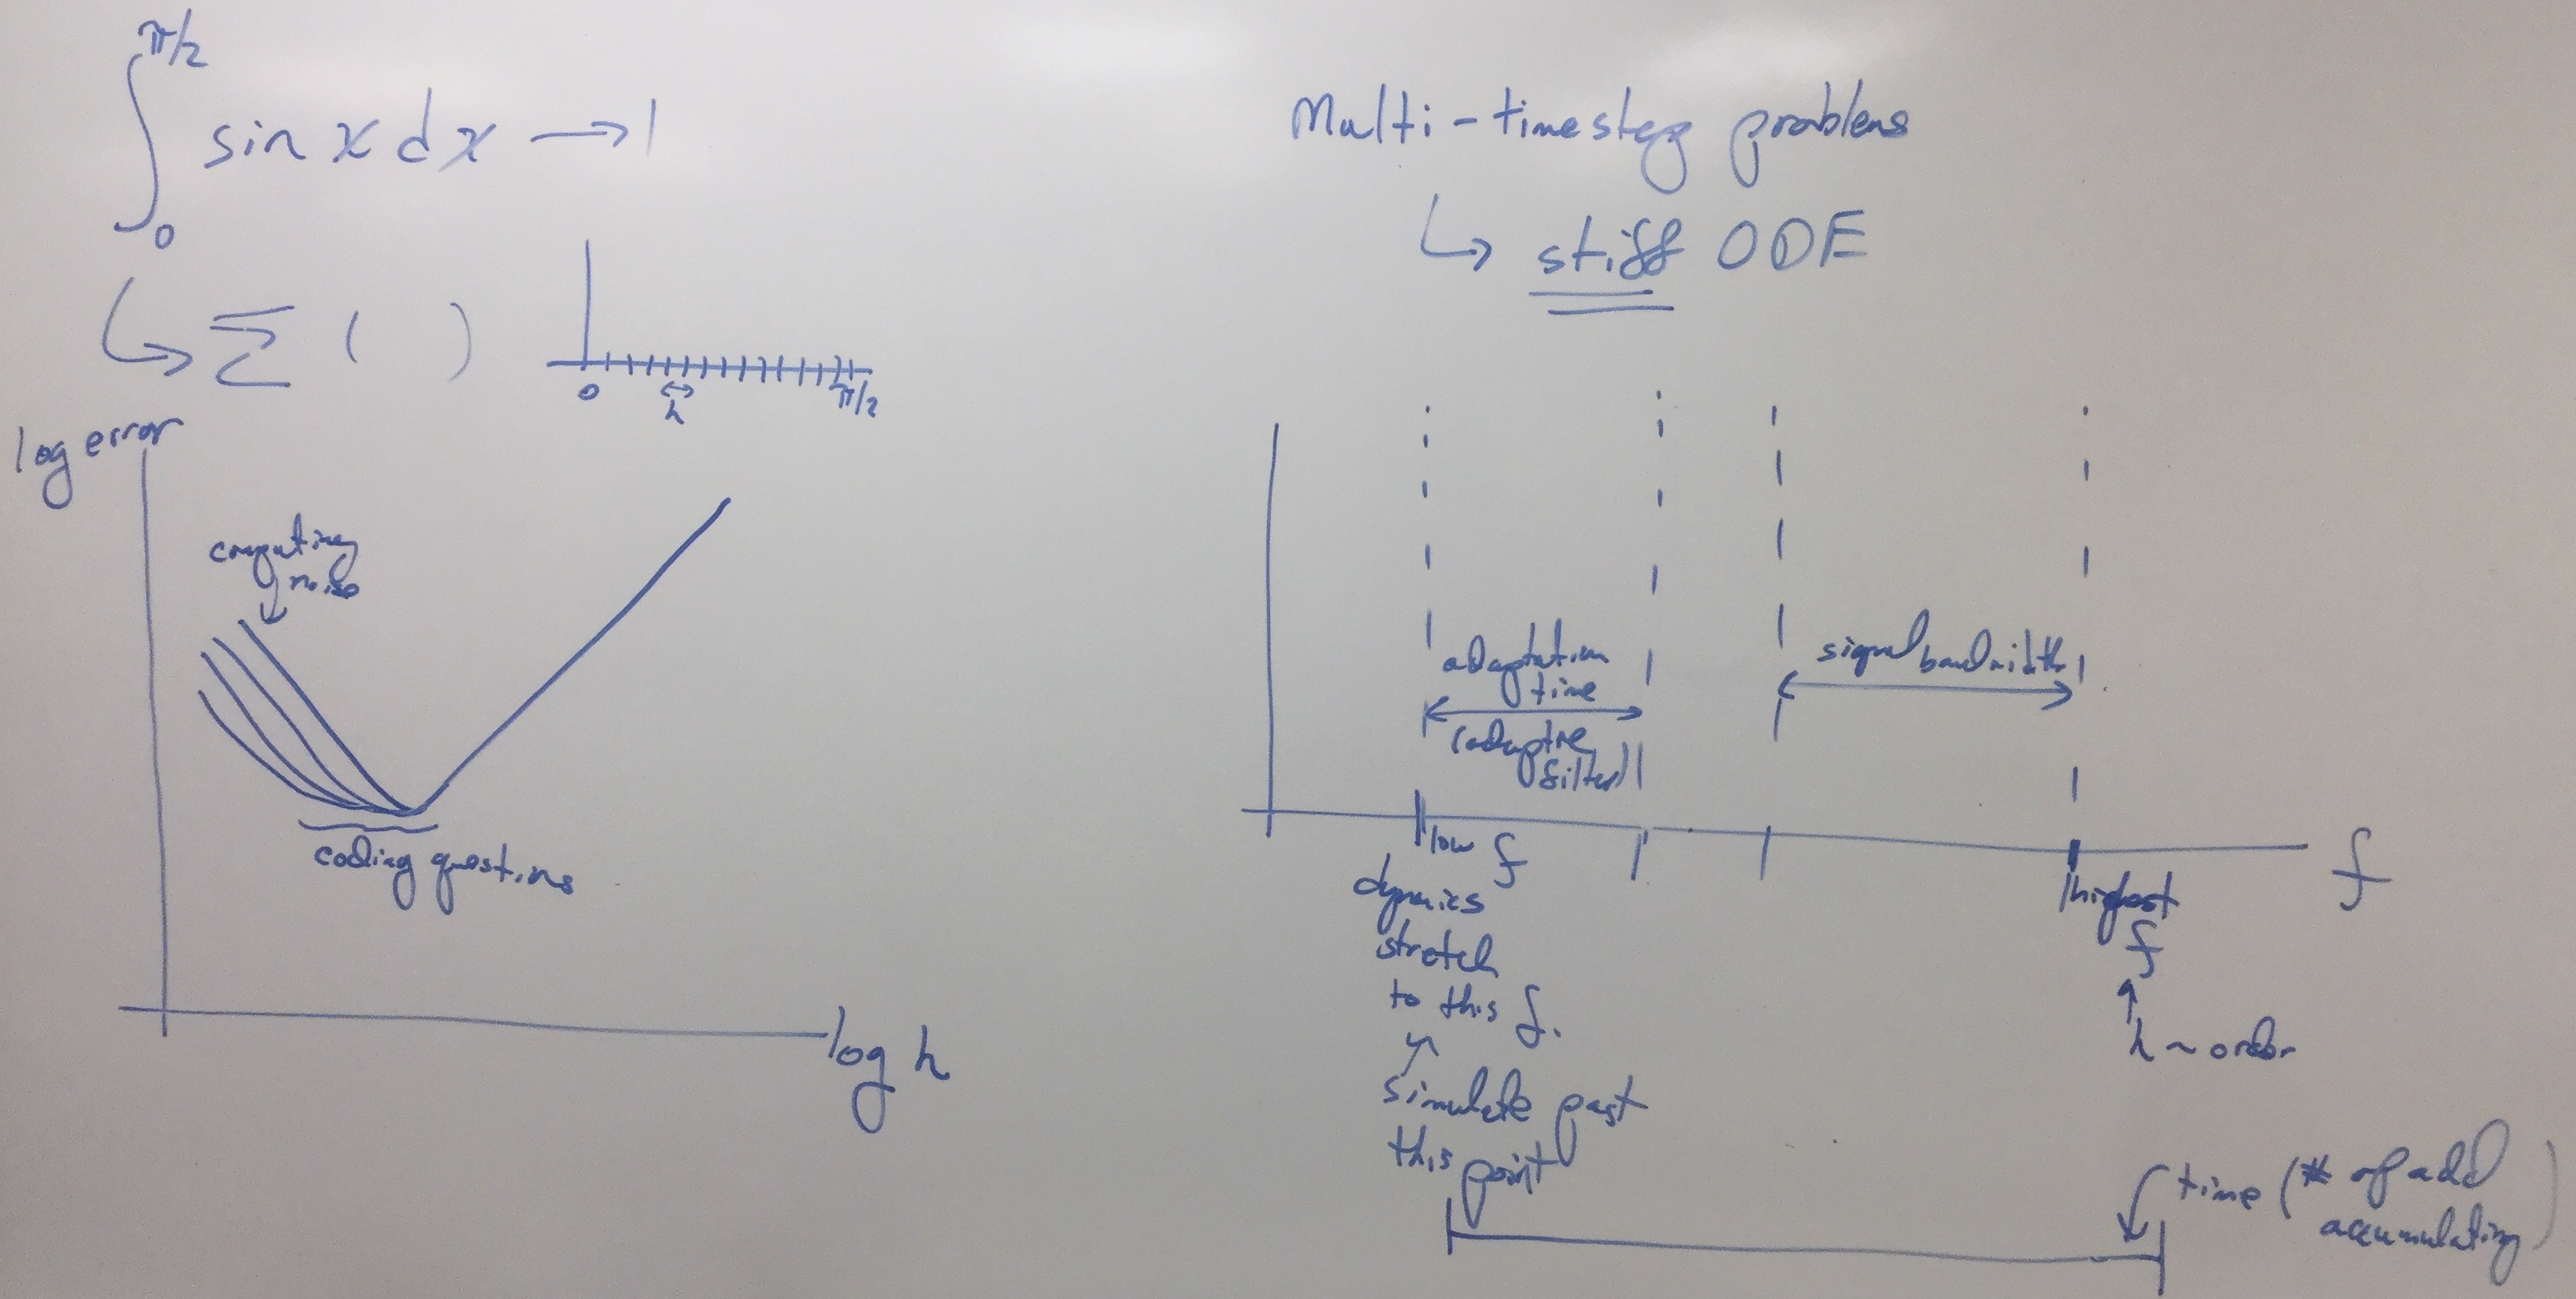 ∫₀^π/2 sin x dx → 1
↳ Σ ( )
0 h π/2
log error
computing
noise
coding questions
log h
Multi-timestep problems
↳ stiff ODE
adaptation
time
(adaptive
filter)
signal bandwidth
low f
dynamics
stretch
to this f.
simulate past
this point
highest
f
h ~ order
f
time (# of add
accumulating)